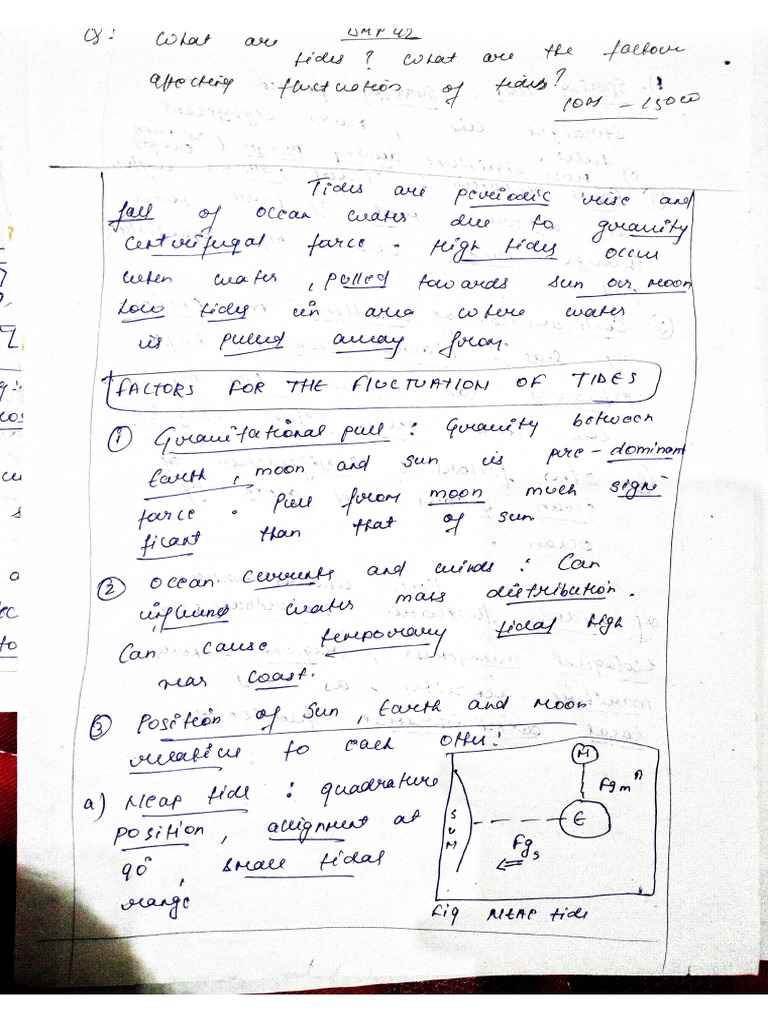 UMP 42
Q: What are
tides? What are the factors
affecting fluctuation of tides?
10M - 150W
Tides are periodic rise and
fall of ocean water due to gravity
centrifugal force. High tides occur
when water, pulled towards sun or moon
Low tides in area where water
is pulled away from.
FACTORS FOR THE FLUCTUATION OF TIDES
① Gravitational pull : Gravity between
Earth, moon and sun is pre-dominant
force. Pull from moon much signi
ficant than that of sun
② Ocean currents and winds : Can
influence water mass distribution.
Can cause temporary tidal high
near coast.
③ Position of Sun, Earth and Moon
relative to each other:
a) Neap tide : quadrature
position, assignment at
90°, small tidal
range
M
Fgm
E
SUN
Fgs
Fig NEAP tide